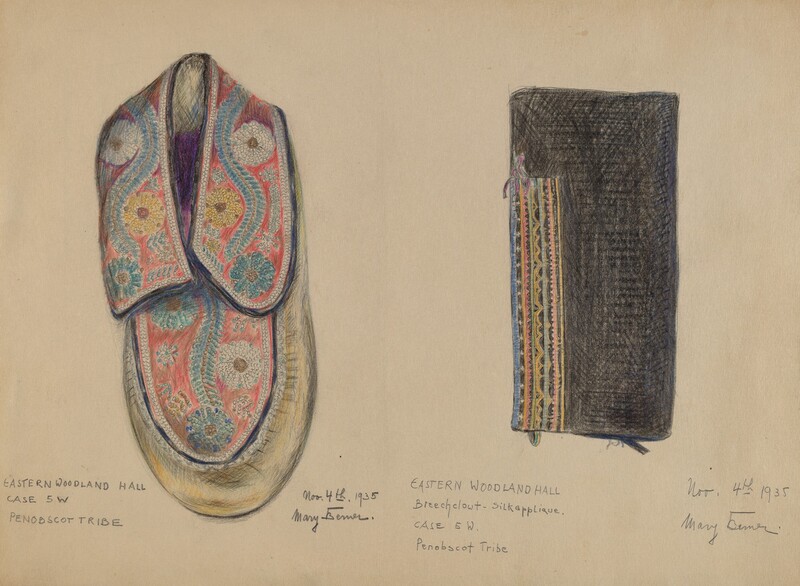 EASTERN WOODLAND HALL
CASE 5 W
PENOBSCOT TRIBE
Nov. 4th. 1935
Mary Berner.
EASTERN WOODLAND HALL
Breechclout - Silk applique.
CASE 5 W.
Penobscot Tribe
Nov. 4th 1935
Mary Berner.